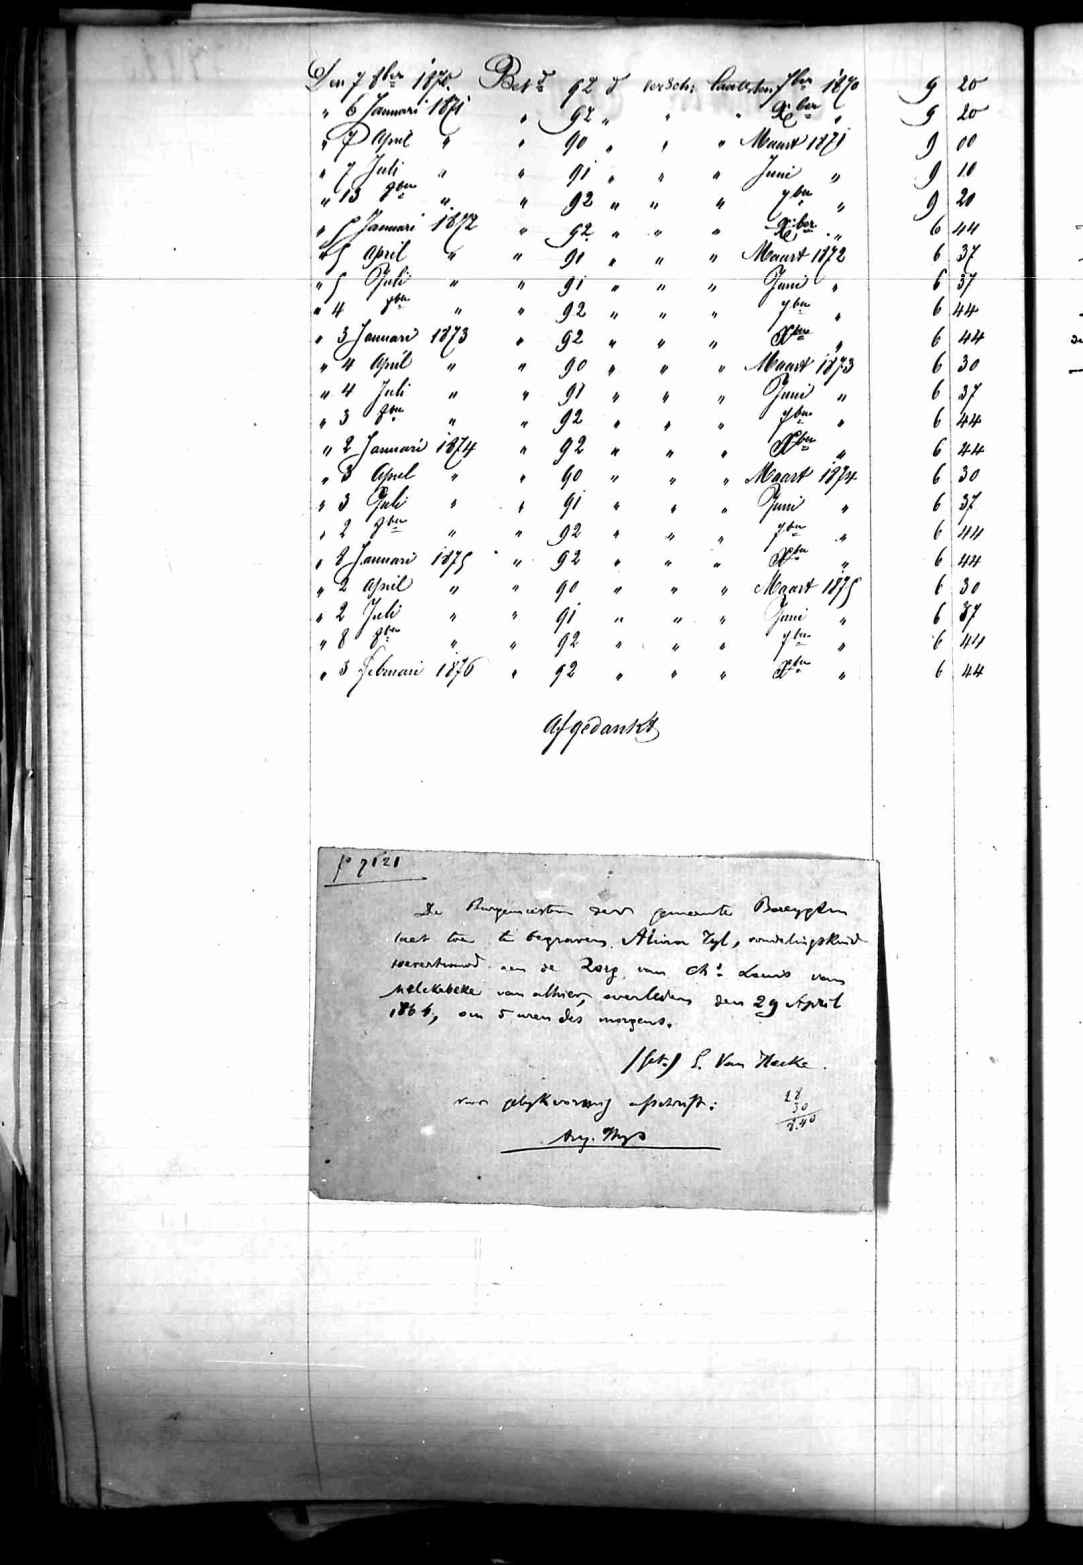 Den 7 8ber 1870. Betd 92 d versch: laatsten 7ber 1870 9 20
" 6 Januari 1871 " 92 " " " Xber " 9 20
" 7 April " " 90 " " " Maart 1871 9 00
" 7 Juli " " 91 " " " Juni " 9 10
" 13 8ber " " 92 " " " 7ber " 9 20
" 5 Januari 1872 " 92 " " " Xber " 6 44
" 5 April " " 91 " " " Maart 1872 6 37
" 5 Juli " " 91 " " " Juni " 6 37
" 4 8ber " " 92 " " " 7ber " 6 44
" 3 Januari 1873 " 92 " " " Xber " 6 44
" 4 April " " 90 " " " Maart 1873 6 30
" 4 Juli " " 91 " " " Juni " 6 37
" 3 8ber " " 92 " " " 7ber " 6 44
" 2 Januari 1874 " 92 " " " Xber " 6 44
" 3 April " " 90 " " " Maart 1874 6 30
" 3 Juli " " 91 " " " Juni " 6 37
" 2 8ber " " 92 " " " 7ber " 6 44
" 8 Januari 1875 " 92 " " " Xber " 6 44
" 2 April " " 90 " " " Maart 1875 6 30
" 2 Juli " " 91 " " " Juni " 6 37
" 8 8ber " " 92 " " " 7ber " 6 44
" 3 Februari 1876 " 92 " " " Xber " 6 44
Afgedankt
f° 7121
De Burgemeester der gemeente
laat toe te begraven Zyl, vondelingskind
aan de zorg van Chs Louis van
van alhier, overleden den 29 April
186 , om 5 uren des morgens.
(Get.) Van Hecke.
voor gelykvormig afschrift:
28
30
8.40